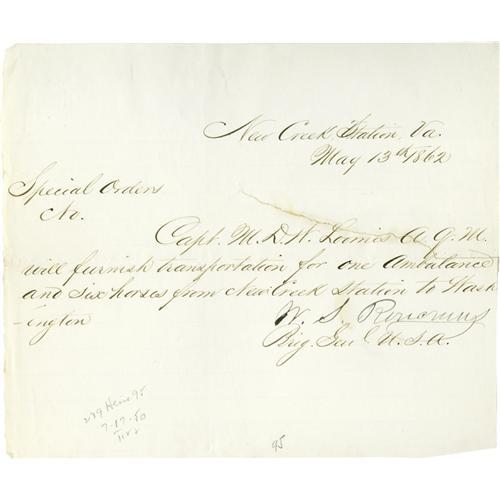 New Creek Station, Va.
May 13th 1862
Special Orders
No.
Capt. M. D. W. Loomis A. Q. M.
will furnish transportation for one Ambulance
and six horses from New Creek Station to Wash
-ington
W. S. Rosecrans
Brig. Genl U.S.A.
279 95
7-17-50
95